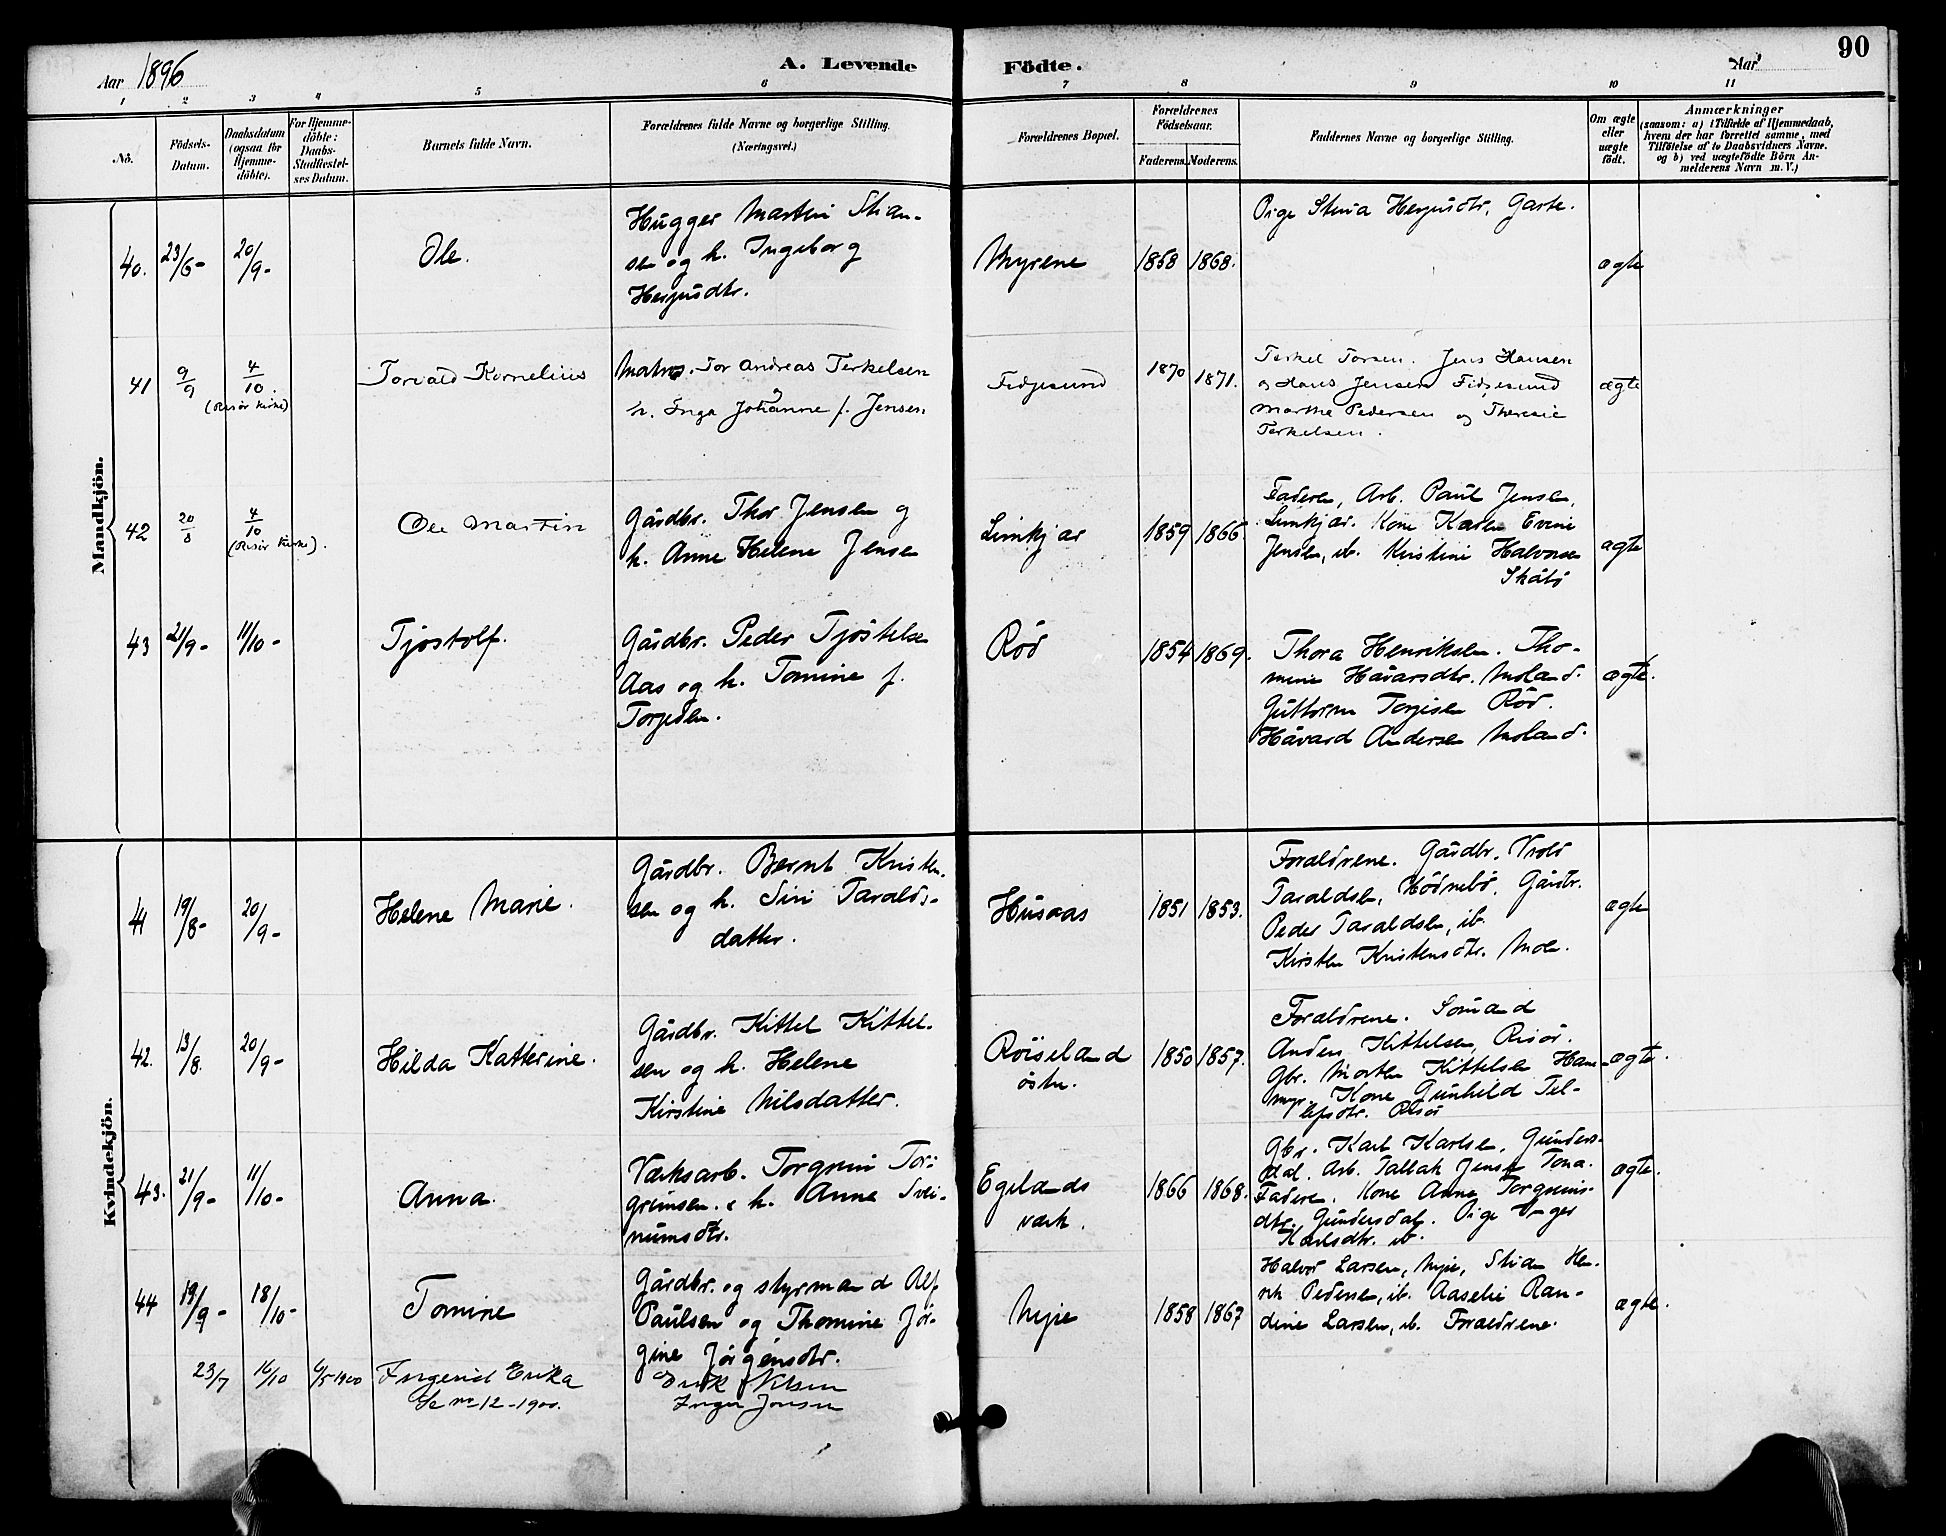 Aar 1896
A. Levende Födte.
Aar
90
1 2 3 4 5 6 7 8 9 10 11
No.
Födsels-Datum.
Daabsdatum (ogsaa for Hjemme-döbte).
For Hjemme-döbte: Daabs-Stadfæstel-ses Datum.
Barnets fulde Navn.
Forældrenes fulde Navne og borgerlige Stilling.
(Næringsvei.)
Forældrenes Bopæl.
Forældrenes Födselsaar.
Faderens. Moderens.
Faddernes Navne og borgerlige Stilling.
Om ægte eller uægte födt.
Anmærkninger
(saasom: a) i Tilfælde af Hjemmedaab,
hvem der har forrettet samme, med
Tilföielse af to Daabsvidners Navne.
og b) ved uægtefödte Börn An-
melderens Navn m. V.)
Mandkjön.
40. 23/6- 20/9- Ole.
Hugger Martin Stian-
sen og h. Ingeborg
Herjusdtr.
Myrene 1858 1868.
Pige Stina Herjusdtr. Garte.
ægte
41 9/9 4/10. (Risør Kirke)
Torvald Kornelius
Matros. Tor Andreas Terkelsen
og h. Inga Johanne f. Jensen
Fidjesund 1870 1871.
Terkel Torsen. Jens Hansen
og Hans Jensen Fidjesund
Marthe Pedersen og Theresie
Terkelsen.
ægte
42 20/8 4/10 (Risør Kirke).
Ole Martin
Gårdbr. Thor Jensen og
h. Anne Helene Jensen
Limkjær 1859 1866
Faderen, Arb. Paul Jensen,
Limkjær. Kone Karen Evine
Jensen, ib. Kristine Halvorsen
Skåtö
ægte
43 21/9- 11/10- Tjøstolf.
Gårdbr. Peder Tjöstelsen
Aas og h. Tomine f.
Torjesen.
Röd 1854 1869.
Thora Henriksen. Tho-
mine Håvarsdtr. Moland.
Guttorm Torjisen Röd.
Håvard Andersen Moland.
ægte.
Kvindekjön.
41 19/8- 20/9- Helene Marie.
Gårdbr. Bernt Kristen-
sen og h. Siri Taralds-
datter.
Husaas 1851 1853.
Forældrene. Gårdbr. Vrold
Taraldsen, Hödnebö, Gårdbr.
Peder Taraldsen, ib.
Kirsten Kristensdtr. Moen.
ægte
42. 13/8. 20/9- Hilda Katherine.
Gårdbr. Kittel Kittel-
sen og h. Helene
Kirstine Nilsdatter.
Röiseland östre. 1850 1857.
Forældrene. Sömand
Anders Kittelsen, Risör.
Gbr. Morten Kittelsen Ham-
myr. Kone Gunhild Tel-
lefsdtr. Risör
ægte.
43. 21/9- 11/10- Anna.
Værksarb. Torgrim Tor-
grimsen. & h. Anne Svei-
numsdtr.
Egelands værk. 1866 1868.
Gbr. Karl Karlsen, Gunders-
dal. Arb. Tallak Jensen
Faderen. Kone Anne Torgrims-
dtr. Gundersdal. Pige Inger
Karlsdtr. ib.
ægte.
44 19/9- 18/10- Tomine
Gårdbr. og styrmand Alf
Paulsen og Thomine Jör-
gine Jörgensdtr.
Myie 1858 1867
Halvor Larsen, Myie, Stian Hen-
rik Pedersen, ib. Aaselie Ran-
dine Larsen, ib. Forældrene.
ægte.
23/7 16/10 6/5 1900 Ingerid Erika
Se nr 12-1900.
Erik Nilsen
Inger Jonsen